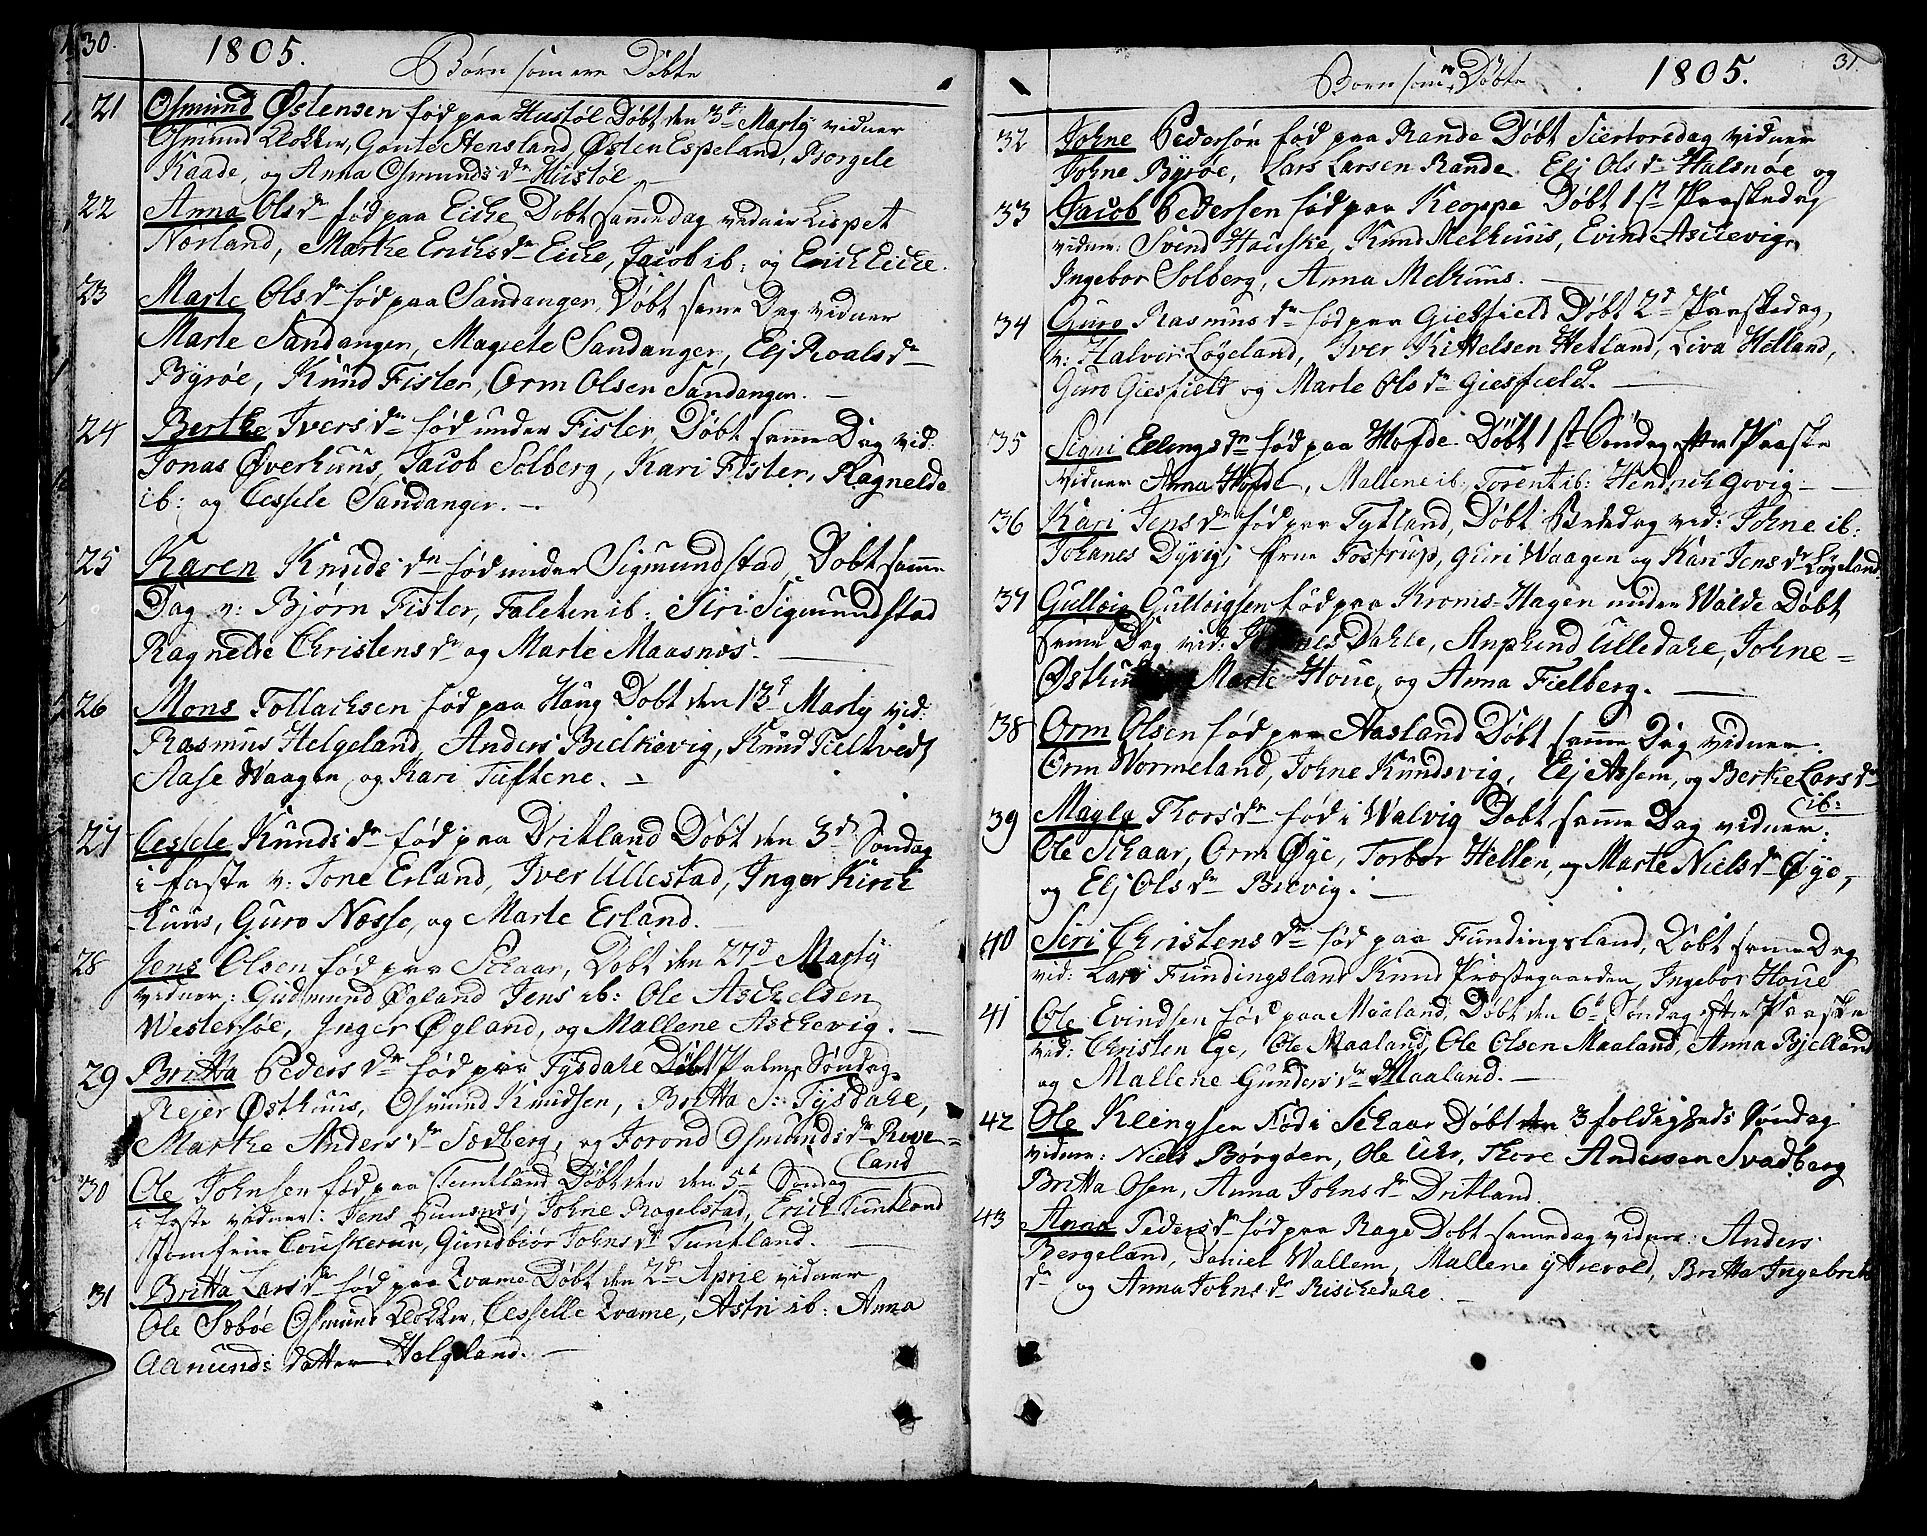 30.
1805.
Børn som ere Døbte
21 Osmund Østensen fød paa Hustøl Døbt den 3d Marty vidner
Osmund Klokker, Goute Hensland, Østen Espeland, Borgele
Kaade, og Anna Osmunds dr Hustøl
22 Anna Ols dr fød paa Eiche Døbt samme dag vidner Lispet
Nørland, Marthe Erichs dr Eiche, Jacob ib: og Erich Eiche.
23 Marte Ols dr fød paa Sandanger, Døbt samme Dag vidner
Marte Sandanger, Magrete Sandanger, Elj Roals dr
Byrøe, Knud Fister, Orm Olsen Sandanger. —
24 Berthe Ivers dr fød under Fister, Døbt samme Dag vid:
Jonas Øverhuus, Jacob Solberg, Kari Fister, Ragnelde
ib: og Cessele Sandanger. —
25 Karen Knuds dr fød under Sigmundstad, Døbt samme
Dag v: Bjørn Fister, Taleten ib: Siri Sigmundstad
Ragnelde Christens dr og Marte Maasnæs. —
26 Mons Tollachsen fød paa Haug Døbt den 13d Marty vid:
Rasmus Helgeland, Anders Bielkevig, Knud Tieltvedt
Aase Waagen, og Kari Tuftene. —
27 Cessele Knuds dr fød paa Dritland Døbt den 3d Søndag
i faste v: Tone Erland, Iver Ullestad, Inger Kirck
huus, Guro Næsse, og Marte Erland.
28 Jens Olsen fød paa Schaar, Døbt den 27d Marty
vidner: Gudmund Øgland Jens ib: Ole Aschelsen
Westersøe, Inger Øgland, og Mallene Aschevig. —
29 Britta Peders dr fød paa Tysdahl Døbt Palme Søndag
Rejer Østhuus, Osmund Knudsen, Britta S: Tysdahl,
Marthe Anders dr Sædberg, og Torond Osmunds dr Rive=
land
30 Ole Johnsen fød paa Tuntland Døbt den den 5te Søndag
i faste vidner: Jens Hunsnes, Johne Ragelstad, Erich Tuntland
Jomfrue Couskeron, Gundbiør Johns dr Tuntland. —
31 Britta Lars dr fød paa Qvame Døbt den 2d Aprie vidner
Ole Sæbøe Osmund Klokker, Cesselle Qvame, Astri ib: Anna
Aamunds datter Helgeland. —
31
Børn som ere Døbte
1805.
32 Johne Pedersøn fød paa Rande Døbt Siertorsdag vidner
Johne Byrøe, Lars Larsen Rande Elj Ols dr Halsnøe og
33 Jacob Pedersen fød paa Kroppe Døbt 1st Paaskedag
vidner: Svend Hauske, Knud Melhuus, Evind Aschevig,
Ingebor Solberg, Anna Melhuus. —
34 Guro Rasmus dr fød paa Giesfield Døbt 2d Paaskedag,
v: Halvor Løgeland, Iver Kittelsen Hetland, Liva Helland,
Guro Giesfield og Marte Ols dr Giesfield. —
35 Signi Ellings dr fød paa Hofde Døbt 1st Søndag efter Paaske
vidner Anna Hofde, Mallene ib: Torent ib: Hendrich Govig: —
36 Kari Jens dr fød paa Tytland, Døbt Bededag vid: Johne ib:
Johanes Dyvig, frue Fostrup, Guri Waagen og Kari Jens dr Løgeland
37 Gulloig Gulloigsen fød paa Kroms=Hagen under Walde Døbt
samme Dag vid: Dahle, Anphind Ulledahl, Johne=
Marte Houe, og Anna Fielberg. —
38 Orm Olsen fød paa Aasland Døbt samme Dag vidner
Orm Wormeland, Johne Knudsvig, Elj Assem, og Berthe Lars dr
ib:
39 Magly Thors dr fød i Walvig Døbt samme Dag vidner:
Ole Schaar, Orm Øye, Torbor Hellen, og Marte Niels dr Øye,
og Elj Ols dr Bievig. —
40 Siri Christens dr fød paa Fundingsland, Døbt samme Dag
vid: Lars Fundingsland Knud Præstegaarden, Ingebor Houe
41 Ole Evindsen fød paa Maaland, Døbt den 6te Søndag efter Paaske
vid: Christen Ege, Ole Maaland, Ole Olsen Maaland, Anna Bjelland
og Mallene Gunders dr Maaland. —
42 Ole Klengsen Fød i Schaar Døbt den 3foldigheds Søndag
vidner: Niels Børgøen, Ole Uhr, Thore Andersen Svadberg
Britta Osen, Anna Johns dr Dritland.
43 Anna Peders dr fød paa Rage Døbt samme dag vidner: Anders
Bergeland, Daniel Wallem, Mallene ytrevold, Britta Ingebrikt
dr og Anna Johns dr Rischedahl